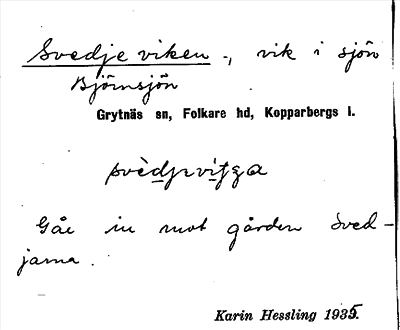 Svedjeviken, vik i sjön
Björnsjön
Grytnäs sn, Folkare hd, Kopparbergs l.
Går in mot gården Sved-
jarna.
Karin Hessling 1935.